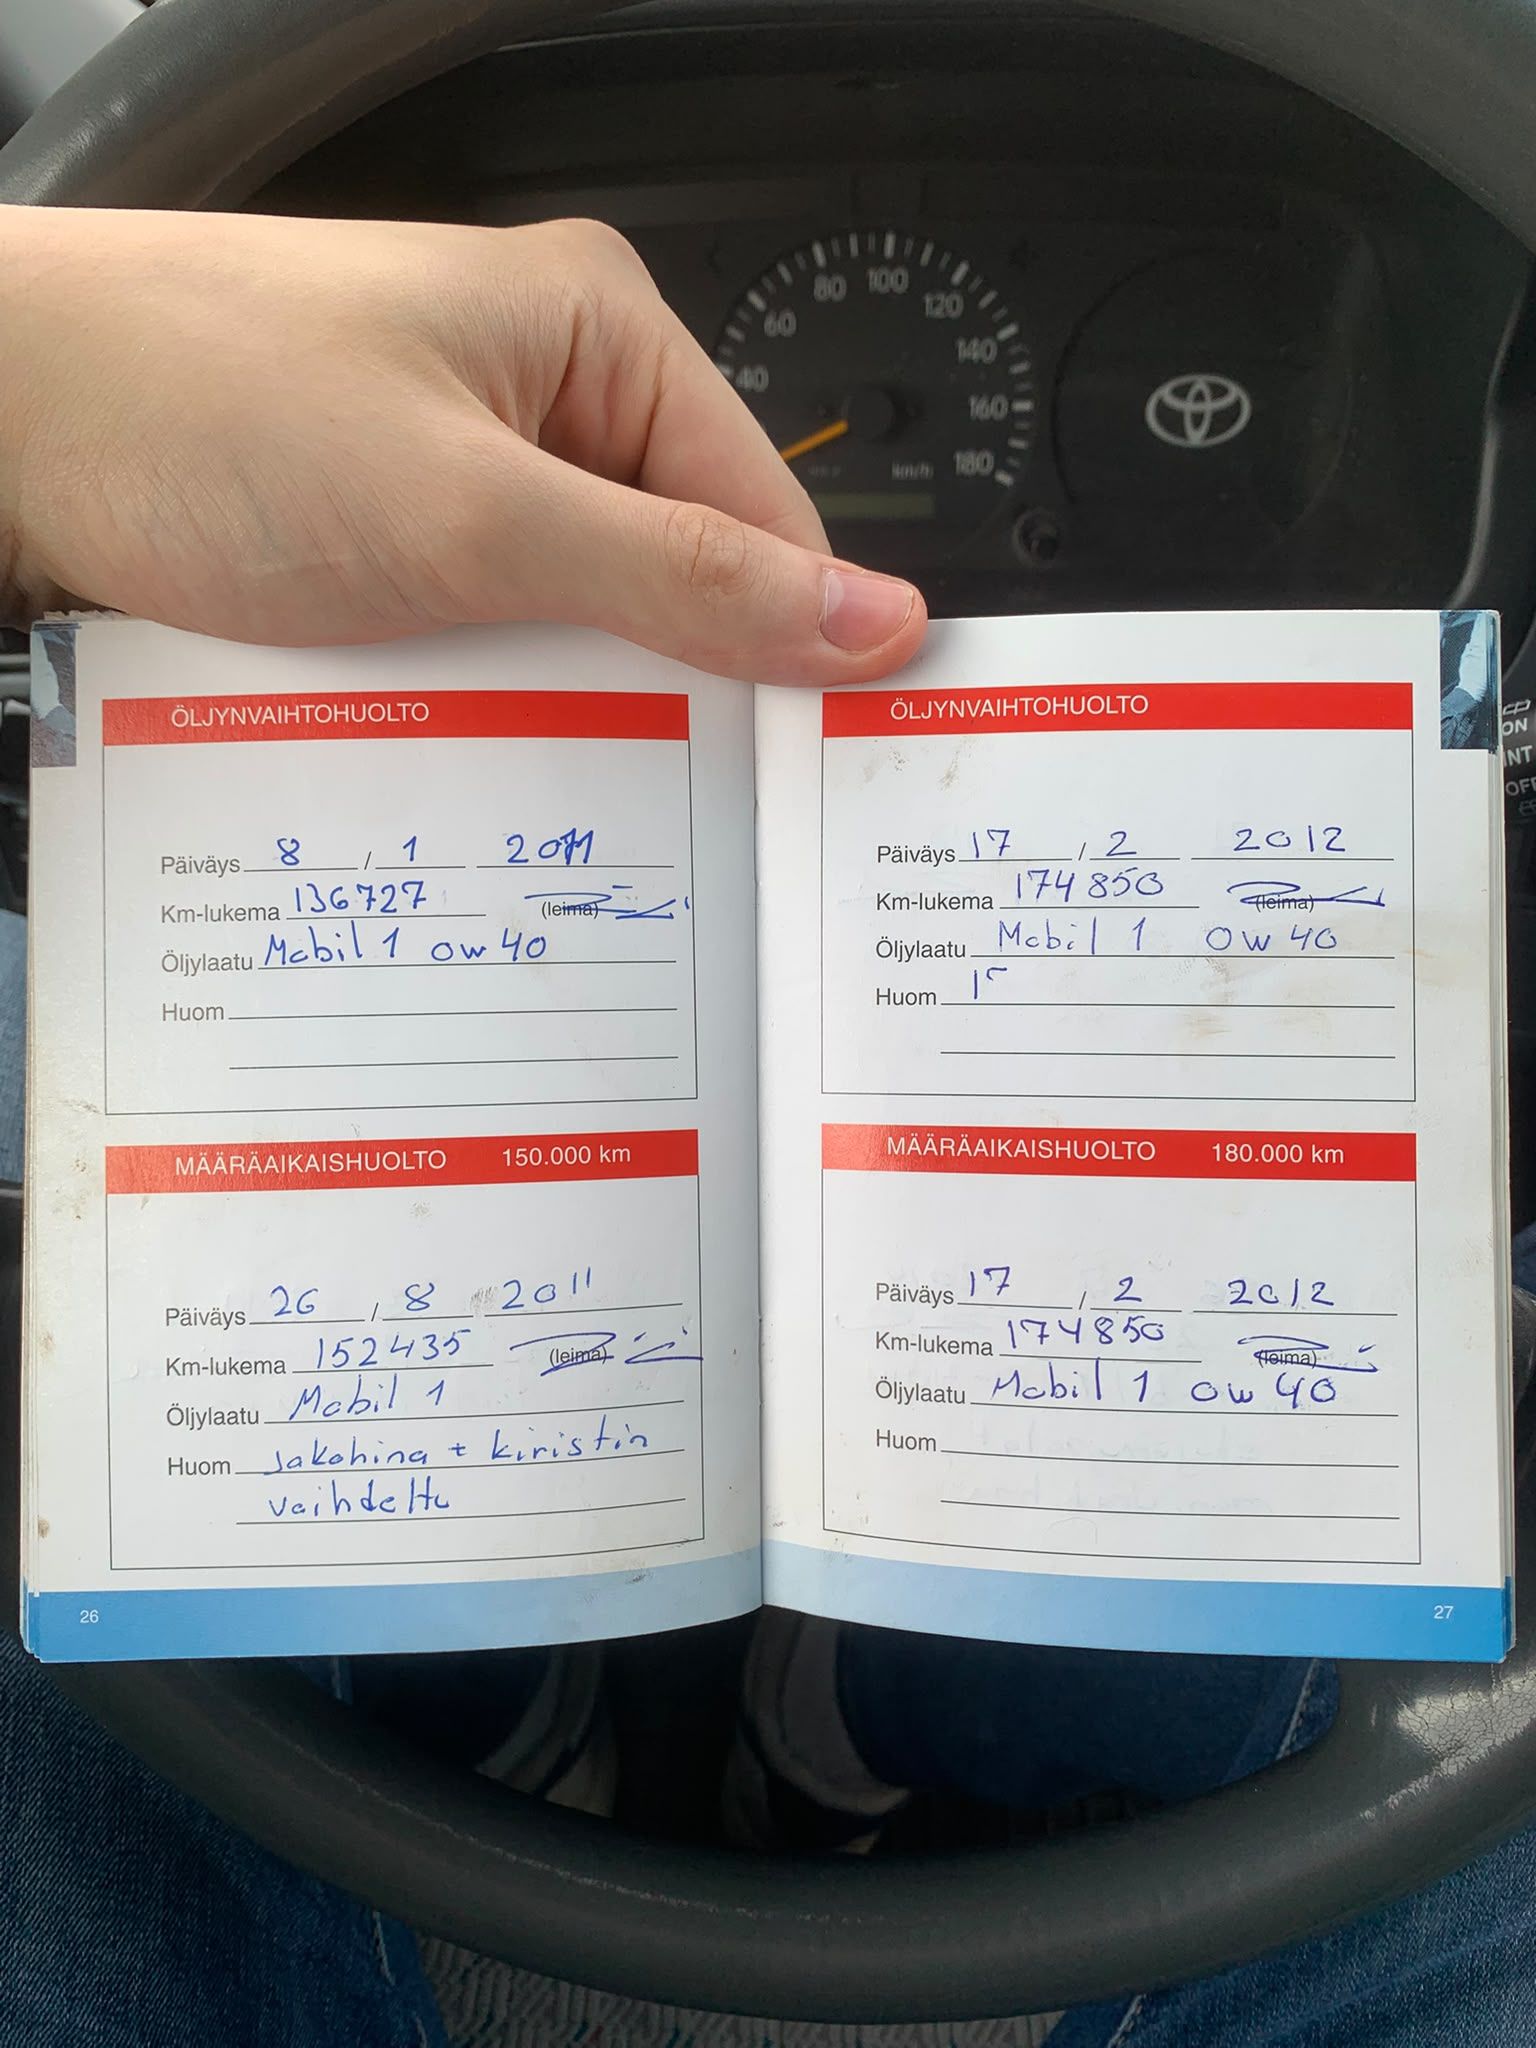 80 100
60 120
40 140
160
km/h 180
ON
INT
OFF
ÖLJYNVAIHTOHUOLTO
Päiväys 8 / 1 2011
Km-lukema 136727 (leima)
Öljylaatu Mobil 1 0w 40
Huom
MÄÄRÄAIKAISHUOLTO 150.000 km
Päiväys 26 / 8 2011
Km-lukema 152435 (leima)
Öljylaatu Mobil 1
Huom Jakohina + kiristin
vaihdettu
26
ÖLJYNVAIHTOHUOLTO
Päiväys 17 / 2 2012
Km-lukema 174850 (leima)
Öljylaatu Mobil 1 0w 40
Huom
MÄÄRÄAIKAISHUOLTO 180.000 km
Päiväys 17 / 2 2012
Km-lukema 174850 (leima)
Öljylaatu Mobil 1 0w 40
Huom
27